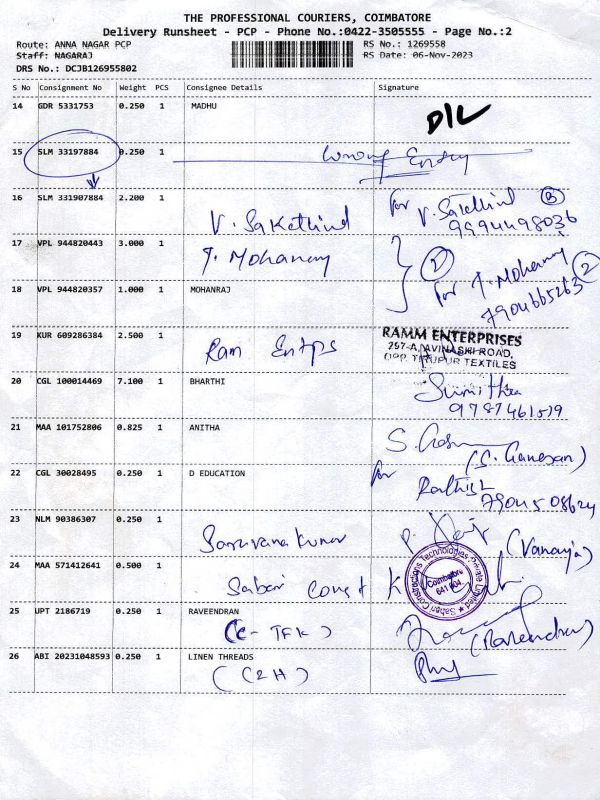 THE PROFESSIONAL COURIERS, COIMBATORE
Delivery Runsheet - PCP - Phone No.:0422-3505555 - Page No.:2
Route: ANNA NAGAR PCP RS No.: 1269558
Staff: NAGARAJ RS Date: 06-Nov-2023
DRS No.: DCJB126955802
S No Consignment No Weight PCS Consignee Details Signature
14 GDR 5331753 0.250 1 MADHU D/L
15 SLM 33197884 0.250 1 Wrong Entry
16 SLM 331907884 2.200 1 V. Sakethind for V. Sakethind 3
9994498036
17 VPL 944820443 3.000 1 T. Mohanraj 2 for T. Mohanraj 2
7904665263
18 VPL 944820357 1.000 1 MOHANRAJ
19 KUR 609286384 2.500 1 Ram Entps RAMM ENTERPRISES
297-A, AVINASHI ROAD,
OPP. TIRUPUR TEXTILES
20 CGL 100014469 7.100 1 BHARTHI Sumithra
9787461519
21 MAA 101752806 0.825 1 ANITHA (S. Ganesan)
22 CGL 30028495 0.250 1 D EDUCATION for
7904508624
23 NLM 90386307 0.250 1 Saravana Kumar (Vanaja)
24 MAA 571412641 0.500 1 Sabari Const
Sabari Constructions Technologies Private Limited
Coimbatore
641 004
25 UPT 2186719 0.250 1 RAVEENDRAN (C-TFK) (Raveendran)
26 ABI 20231048593 0.250 1 LINEN THREADS
(C2H)